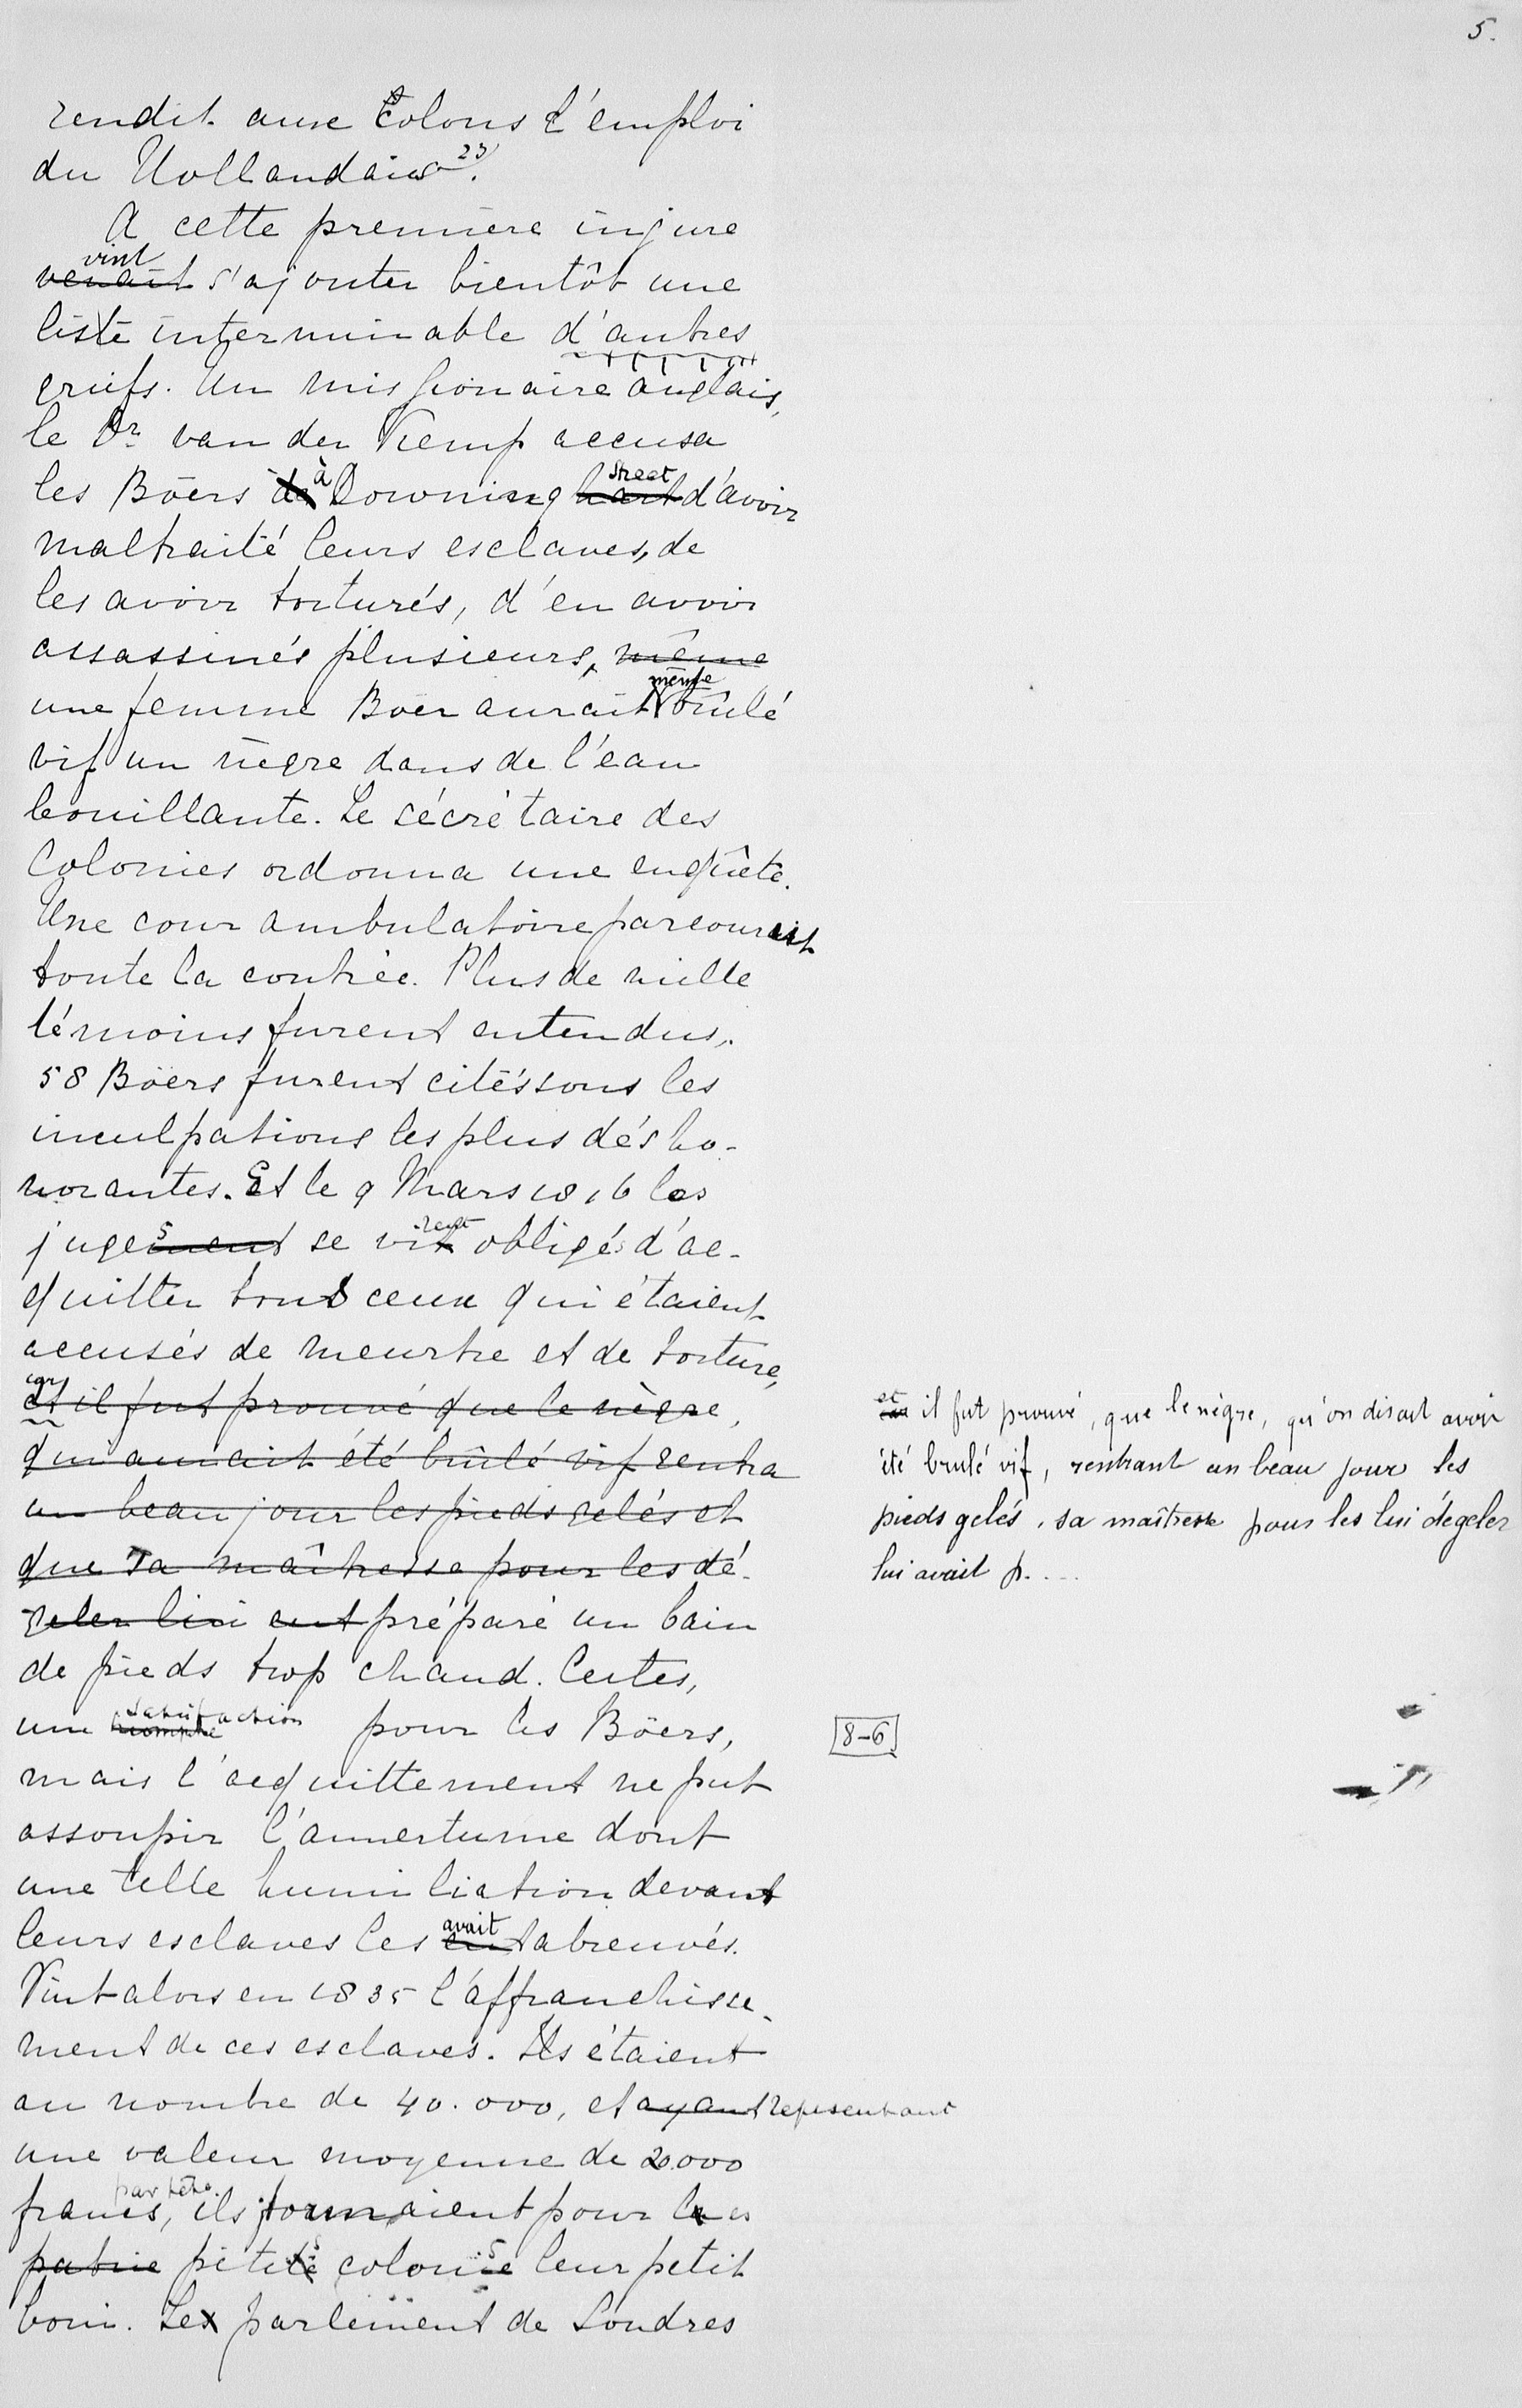 5.
rendit aux Colons l'emploi
du Hollandais 23).
A cette première injure
vint
venait s'ajouter bientôt une
liste interminable d'autres
griefs. Un missionaire anglais,
le Dr van der Kemp accusa
les Böers de à Downing street d'avoir
maltraité leurs esclaves, de
les avoir torturés, d'en avoir
assassinés plusieurs, même
même
une femme Boer aurait brûlé
vif un nègre dans de l'eau
bouillante. Le sécrétaire des
Colonies ordonna une enquête.
Une cour ambulatoire parcourait
toute la contrée. Plus de mille
témoins furent entendus.
58 Böers furent cités sous les
inculpations les plus désho-
norantes. Et le 9 Mars 1816 les
jugement s se vit rent obligés d'ac-
quitter tous ceux qui étaient
accusés de meurtre et de torture,
car
et il fut prouvé que le nègre,
qui aurait été brûlé vif rentra
un beau jour les pieds gelés et
que sa maîtresse pour les dé-
geler lui eut préparé un bain
de pieds trop chaud. Certes,
une triomphe satisfaction pour les Böers,
mais l'acquittement ne put
assoupir l'amertume dont
une telle humiliation devant
leurs esclaves les eut avait abreuvés.
Vint alors en 1835 l'affranchisse-
ment de ces esclaves. Ils étaient
au nombre de 40.000, et ayant representant
une valeur moyenne de 2000
par tête.
francs, ils formaient pour les
patrie petite s colonie s leur petit
bouis. Le parlement de Londres
car et il fut prouvé, que le nègre, qu'on disait avoir
été brulé vif, rentrant un beau jour les
pieds gelés, sa maîtresse pour les lui dégeler
lui avait p....
8-6